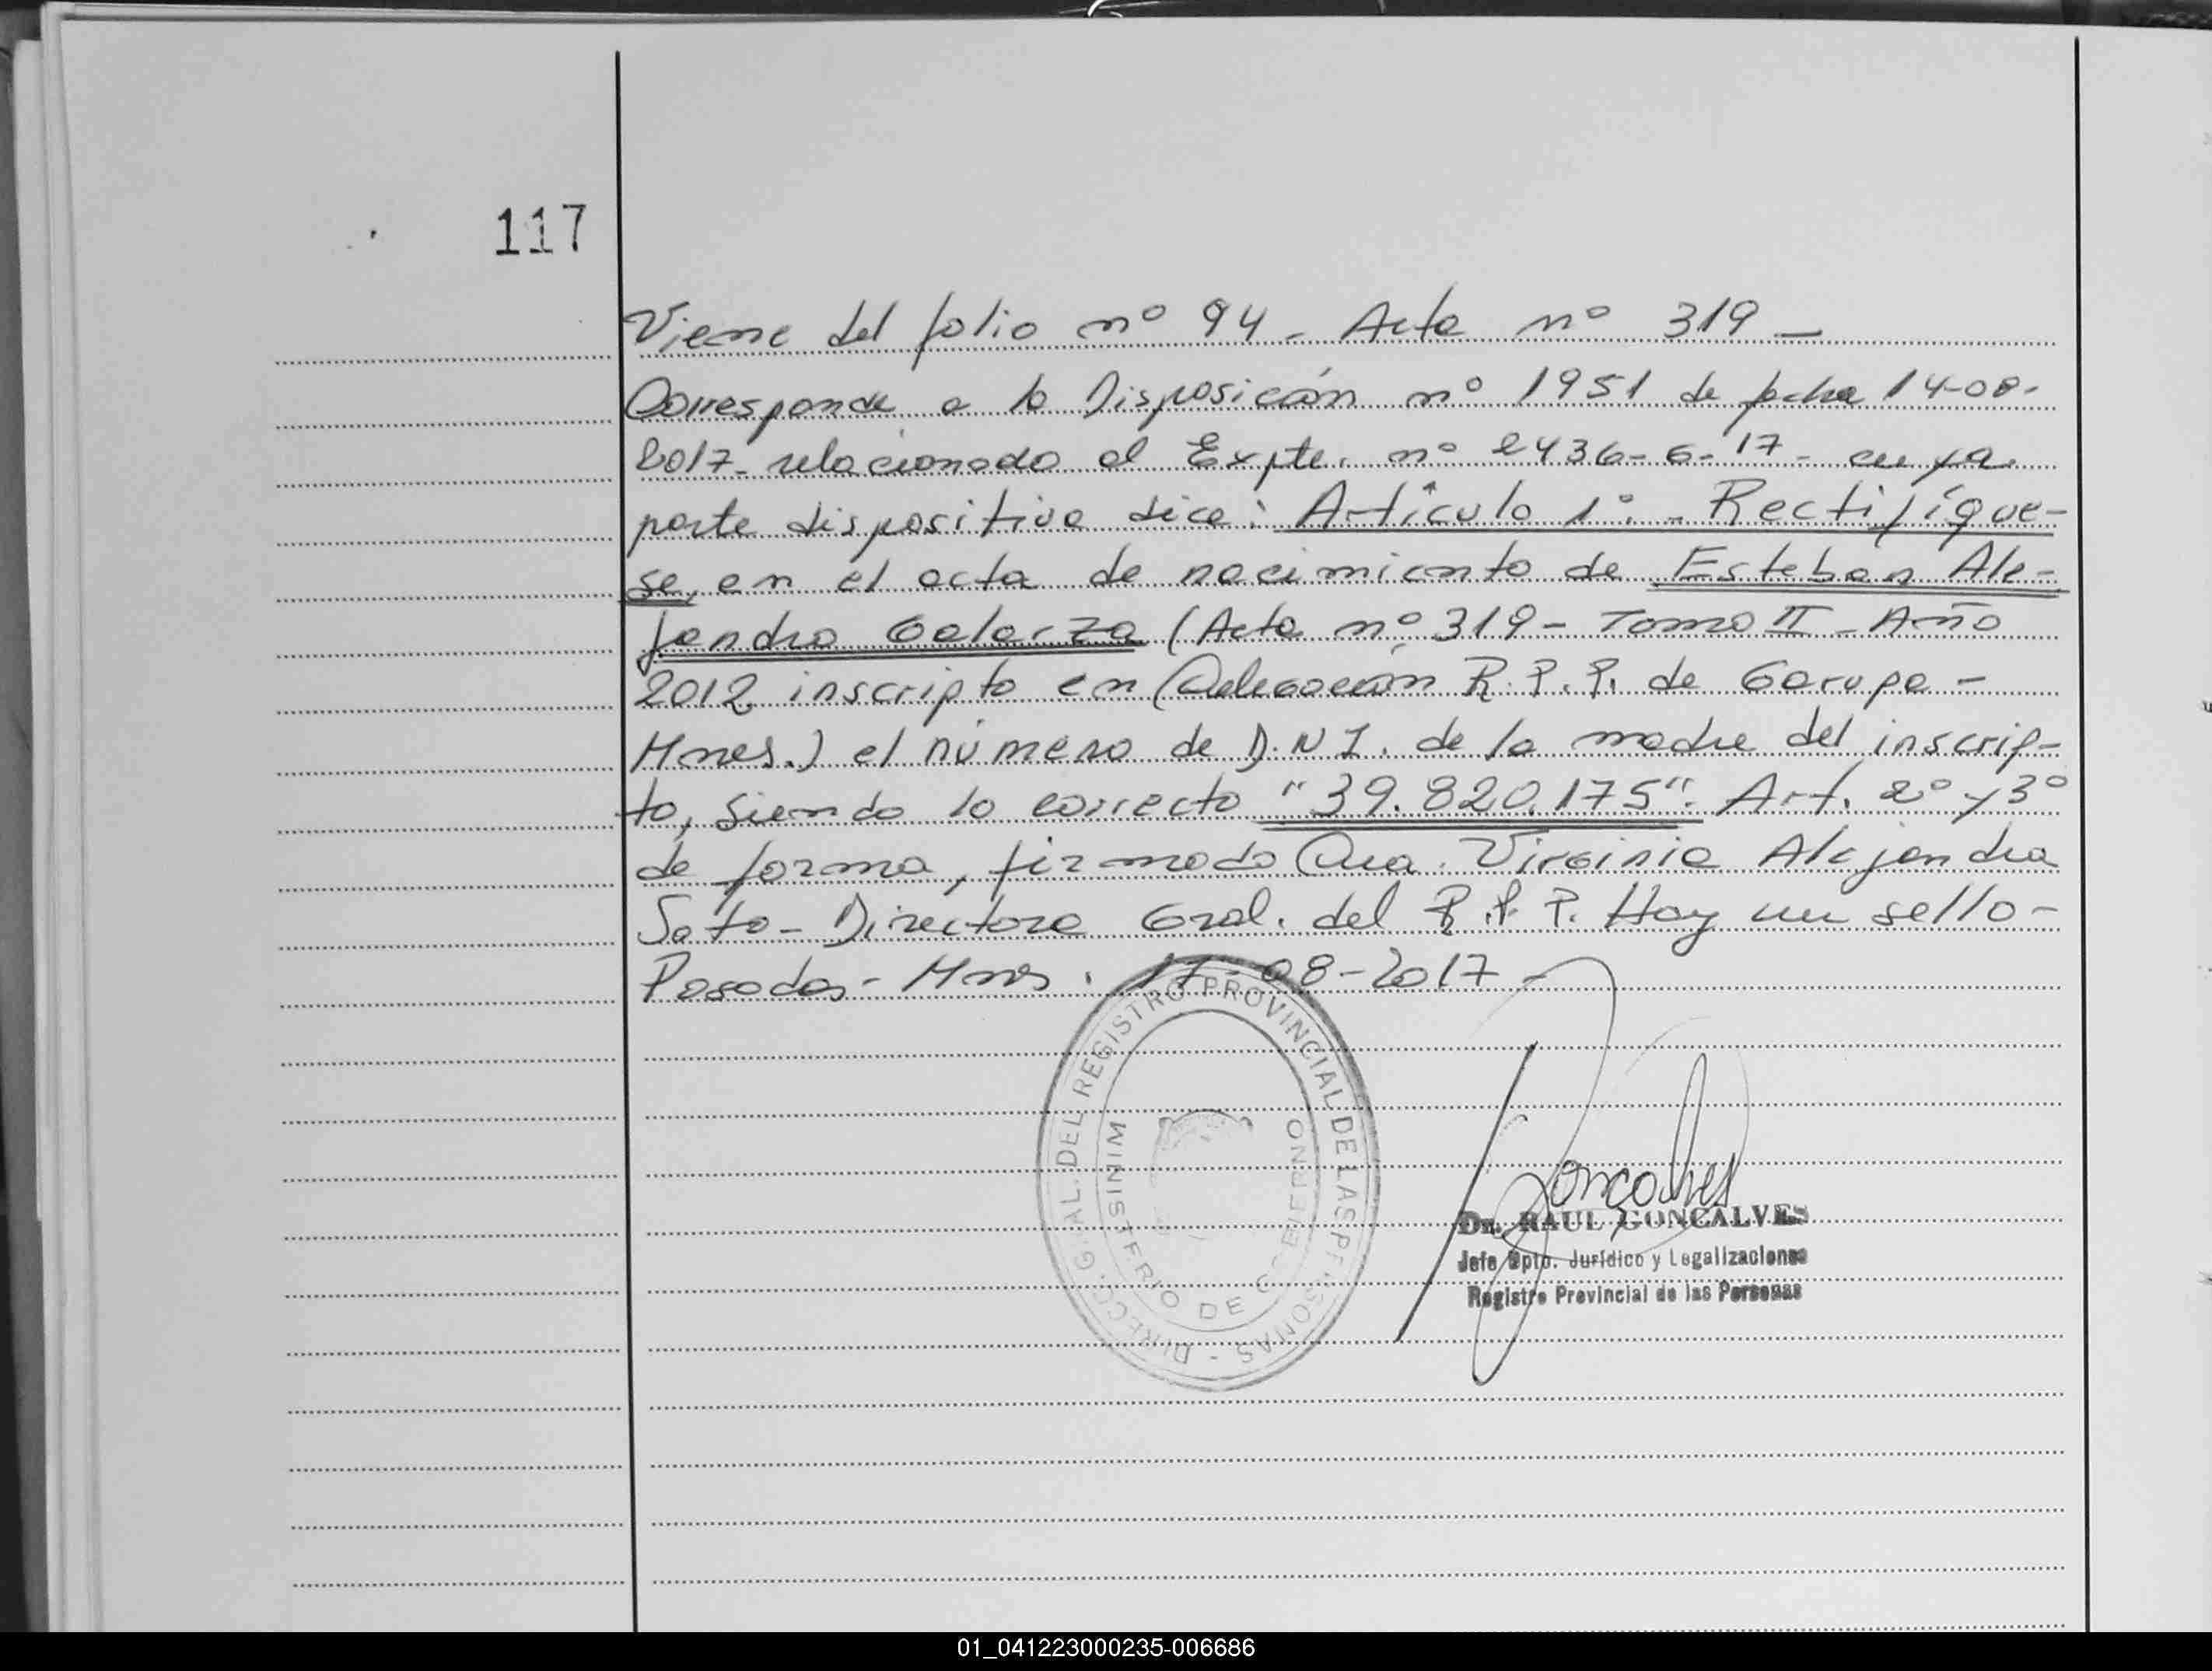 117
Viene del folio nº 94 - Acta nº 319 -
Corresponde a la Disposición nº 1951 de fecha 14-08-
2017- relacionado al Expte. nº 2436-6-17- cuya
parte dispositiva dice: Artículo 1º.- Rectifíque-
se, en el acta de nacimiento de Esteban Ale-
jandro Galarza (Acta nº 319 - Tomo II - Año
2012 inscripto en Delegación R.P.P. de Garupa -
Mnes.) el número de D.N.I. de la madre del inscrip-
to, siendo lo correcto "39.820.175". Art. 2º y 3º
de forma, firmado Dra. Virginia Alejandra
Soto - Directora Gral. del R.P.P. Hay un sello -
Posadas - Mnes. 17-08-2017 -
DIRECC. GRAL. DEL REGISTRO PROVINCIAL DE LAS PERSONAS -
MINISTERIO DE GOBIERNO
Goncalves
Dr. RAUL GONCALVES
Jefe Dpto. Jurídico y Legalizaciones
Registro Provincial de las Personas
01_041223000235-006686